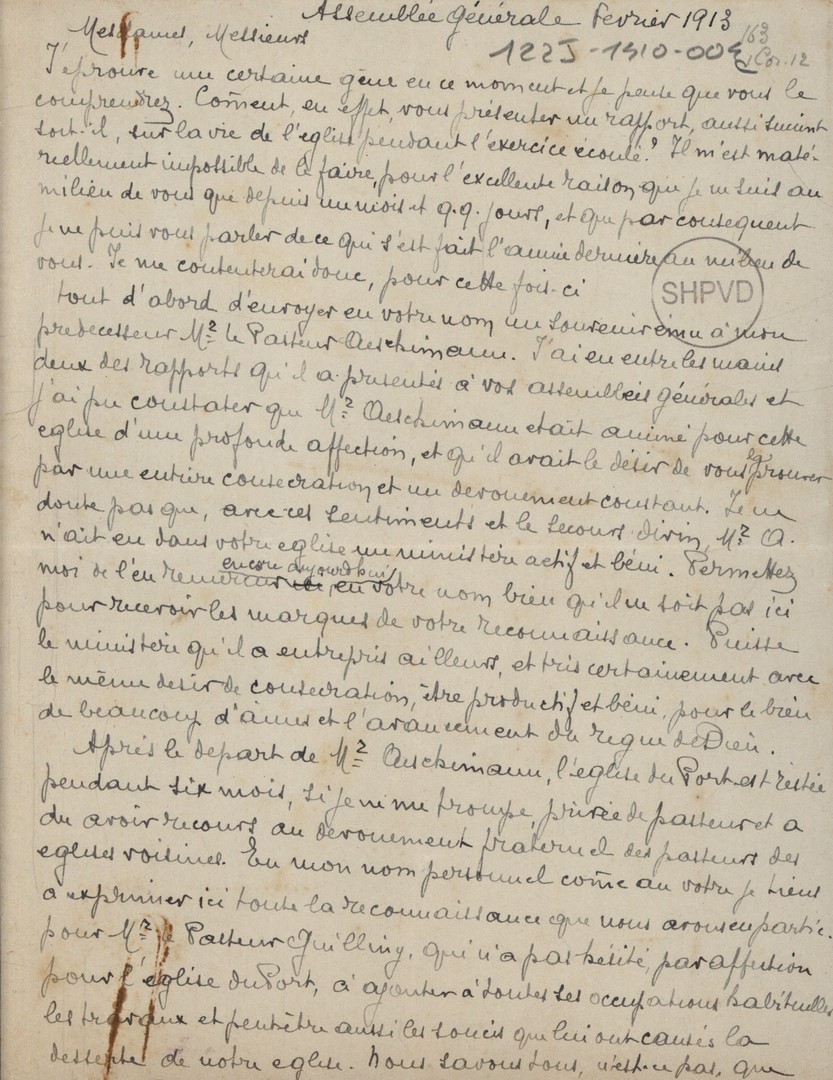 Assemblée Générale Fevrier 1913
Mesdames, Messieurs
163
122J-1910-004
1 Cor. 12
J'éprouve une certaine gêne en ce moment et je pense que vous le
comprendrez. Coment, en effet, vous présenter un rapport, aussi succint
soit-il, sur la vie de l'eglise pendant l'exercice écoulé? Il m'est maté-
riellement impossible de le faire, pour l'excellente raison que je ne suis au
milieu de vous que depuis un mois et q.q. jours, et que par consequent
je ne puis vous parler de ce qui s'est fait l'année dernière au milieu de
vous. Je me contenterai donc, pour cette fois-ci
SHPVD
tout d'abord d'envoyer en votre nom un souvenir ému à mon
predecesseur Mr le Pasteur Aeschimann. J'ai eu entre les mains
deux des rapports qu'il a presentés à vos assemblées générales et
j'ai pu constater que Mr Aeschimann etait animé pour cette
eglise d'une profonde affection, et qu'il avait le désir de vous la prouver
par une entière consecration et un devouement constant. Je ne
doute pas que, avec ces sentiments et le secours divin, Mr A.
n'ait eu dans votre eglise un ministère actif et béni. Permettez
moi de l'en remercier encore aujourd'hui en votre nom bien qu'il ne soit pas ici
pour recevoir les marques de votre reconnaissance. Puisse
le ministère qu'il a entrepris ailleurs, et très certainement avec
le même desir de consecration, être productif et béni, pour le bien
de beaucoup d'âmes et l'avancement du regne de Dieu.
Après le depart de Mr Aeschimann, l'eglise du Port est restée
pendant six mois, si je ne me trompe, privée de pasteur et a
du avoir recours au dévouement fraternel des pasteurs des
eglises voisines. En mon nom personnel come au votre je tiens
a exprimer ici toute la reconnaissance que nous avons en partic.
pour Mr le Pasteur Guilliny, qui n'a pas hésité, par affection
pour l'église du Port, à ajouter à toutes ses occupations habituelles
les travaux et peut-être aussi les soucis que lui ont causés la
desserte de notre eglise. Nous savons tous, n'est-ce pas, que